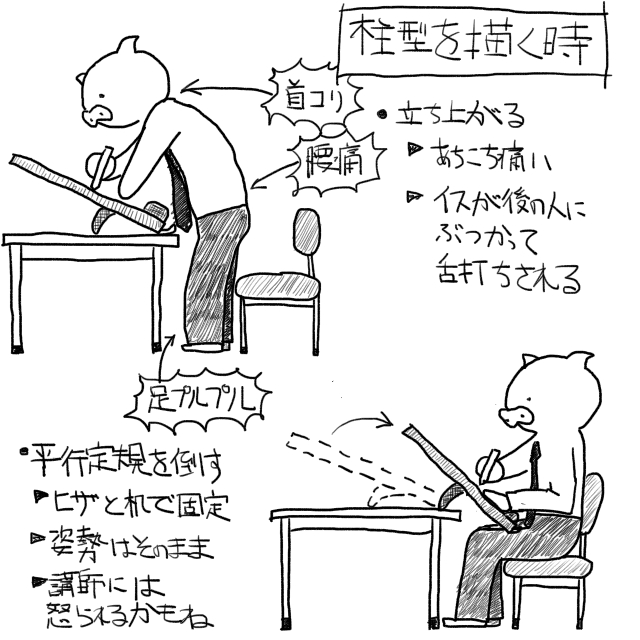 柱型を描く時
首コリ
腰痛
•立ち上がる
▶あちこち痛い
▶イスが後の人に
ぶつかって
舌打ちされる
足プルプル
•平行定規を倒す
▶ヒザと机で固定
▶姿勢はそのまま
▶講師には
怒られるかもね